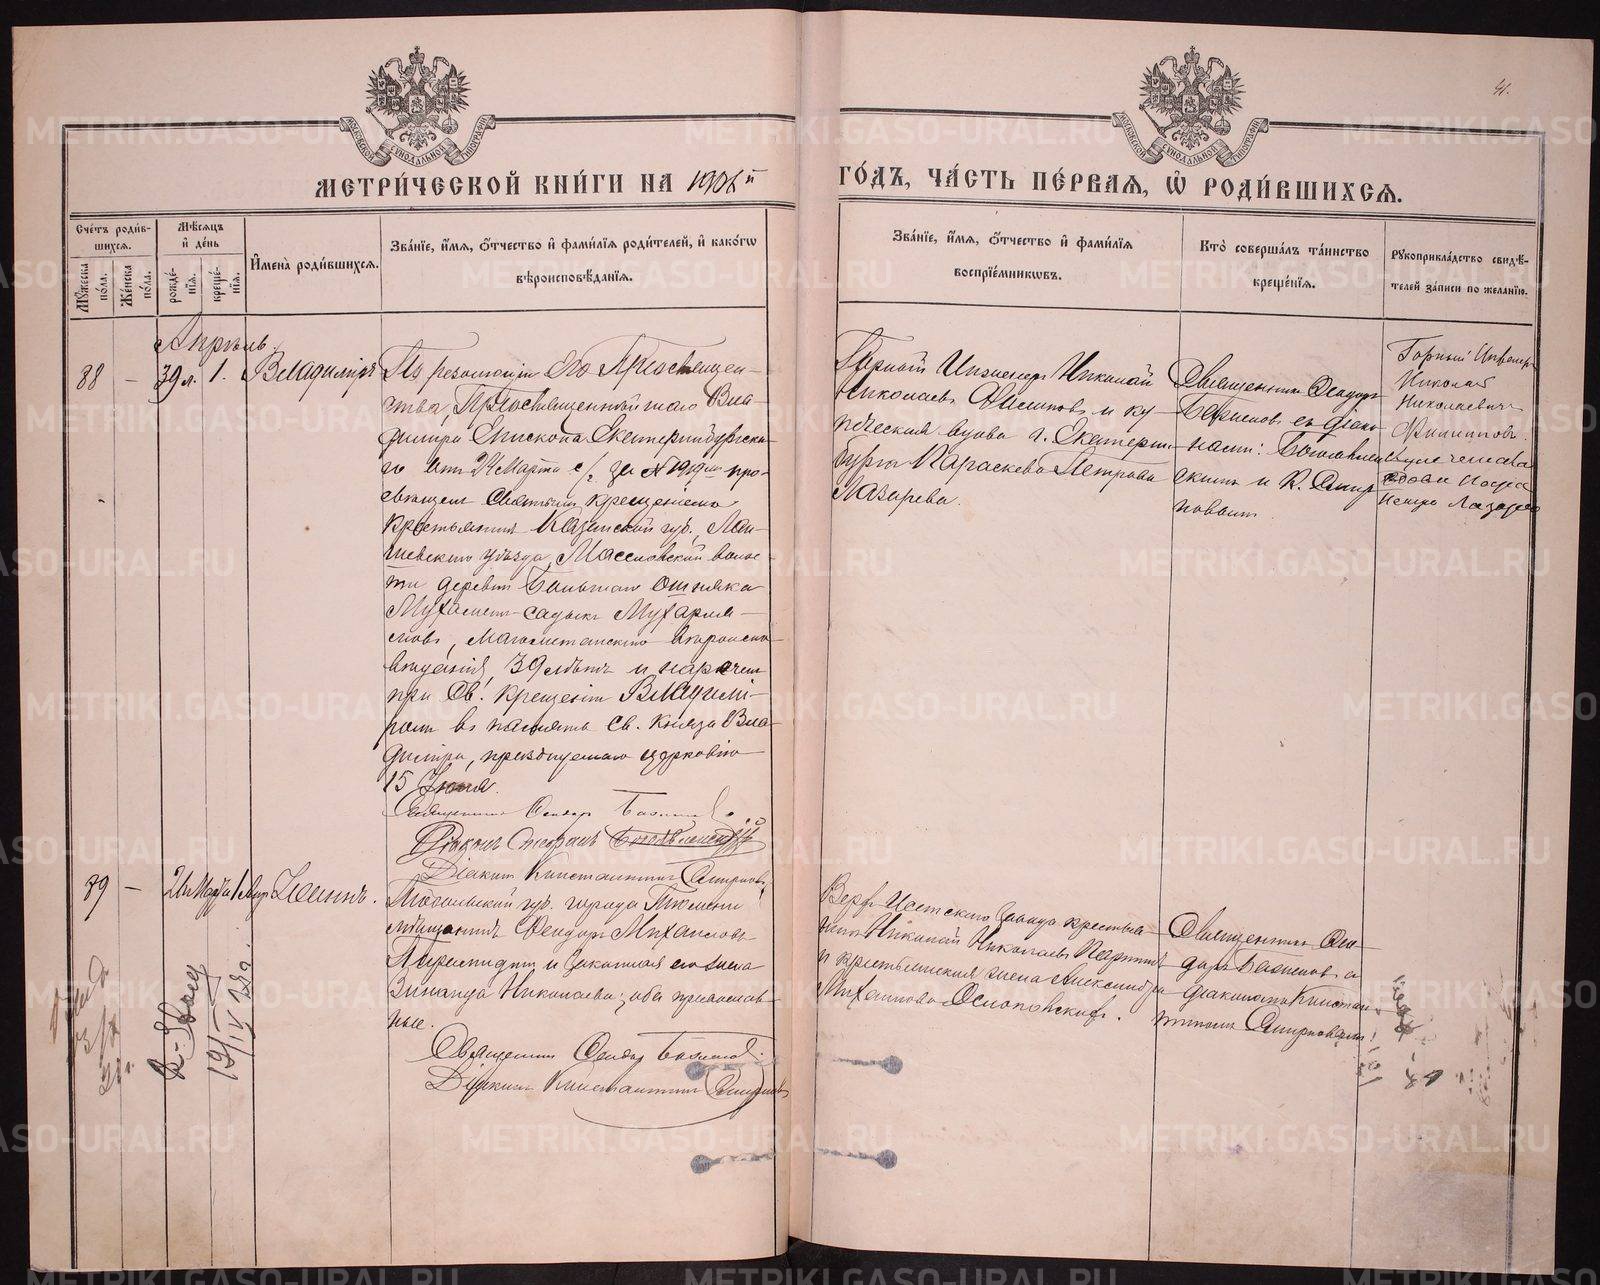 41.
МОСКОВСКОЙ СѴНОДАЛЬНОЙ ТИПОГРАФІИ
МОСКОВСКОЙ СѴНОДАЛЬНОЙ ТИПОГРАФІИ
МЕТРИ́ЧЕСКОЙ КНИ́ГИ НА 1906 й
ГО́ДЪ, ЧА́СТЬ ПЕ́РВАЯ, Ѡ҆ РОДИ́ВШИХСЯ.
Сче́тъ роди́в-
шихся.
Му́жеска по́ла.
Же́нска по́ла.
Мѣ́сяцъ
и҆ де́нь
рожде́-
нїя.
креще́-
нїя.
И҆мена̀ роди́вшихся.
Зва́нїе, и҆́мя, ѻ҆́тчество и҆ фами́лїя роди́телей, и҆ како́гѡ
вѣроисповѣ́данїя.
Зва́нїе, и҆́мя, ѻ҆́тчество и҆ фами́лїя
воспрїе́мниковъ.
Кто̀ соверша́лъ та́инство
креще́нїя.
Рукоприкла́дство свидѣ́-
телей за́писи по жела́нїю.
Апрѣль.
88
—
39 л.
1.
Владиміръ
По резолюціи Его Преосвящен-
ства, Преосвященнѣйшаго Вла-
диміра Епископа Екатеринбургска-
го отъ 24 Марта с/г за № 1919 про-
свѣщенъ Святымъ крещеніемъ
крестьянинъ Казанской губ., Лаи-
шевскаго уѣзда, Масловской волос-
ти деревни Большаго Ошняка
Мухаметъ-садыкъ Мухарля-
мовъ, магометанскаго вѣроиспо-
вѣданія, 39 лѣтъ и нареченъ
при Св. крещеніи Владимі-
ромъ въ память Св. Князя Вла-
диміра, празднуемаго церковію
15 Іюля.
Священникъ Ѳеодоръ
Діаконъ Богоявленскій
Діаконъ Константинъ Смирновъ
Горный Инженеръ Николай
Николаевъ Филиповъ и ку-
печеская вдова г. Екатерин-
бурга Параскева Петрова
Лазарева.
Священникъ Ѳеодоръ
съ діако-
нами: Богоявлен-
скимъ и К. Смир-
новымъ
Горный Инженеръ
Николай
Николаевичъ
Филипповъ.
Купеческая
вдова
Петр. Лазарева
89
—
26 Марта
1 Апр.
Іоаннъ.
Тобольской губ. города Тюмени
мѣщанинъ Ѳеодоръ Михаиловъ
и законная его жена
Зинаида Николаева, оба православ-
ные.
Священникъ Ѳеодоръ
Діаконъ Константинъ Смирновъ
Верхъ-Исетскаго завода крестья-
нинъ Николай Николаевъ
и крестьянская жена Александра
Михаилова
Священникъ Ѳео-
доръ съ
діакономъ Констан-
тиномъ Смирновымъ
METRIKI.GASO-URAL.RU